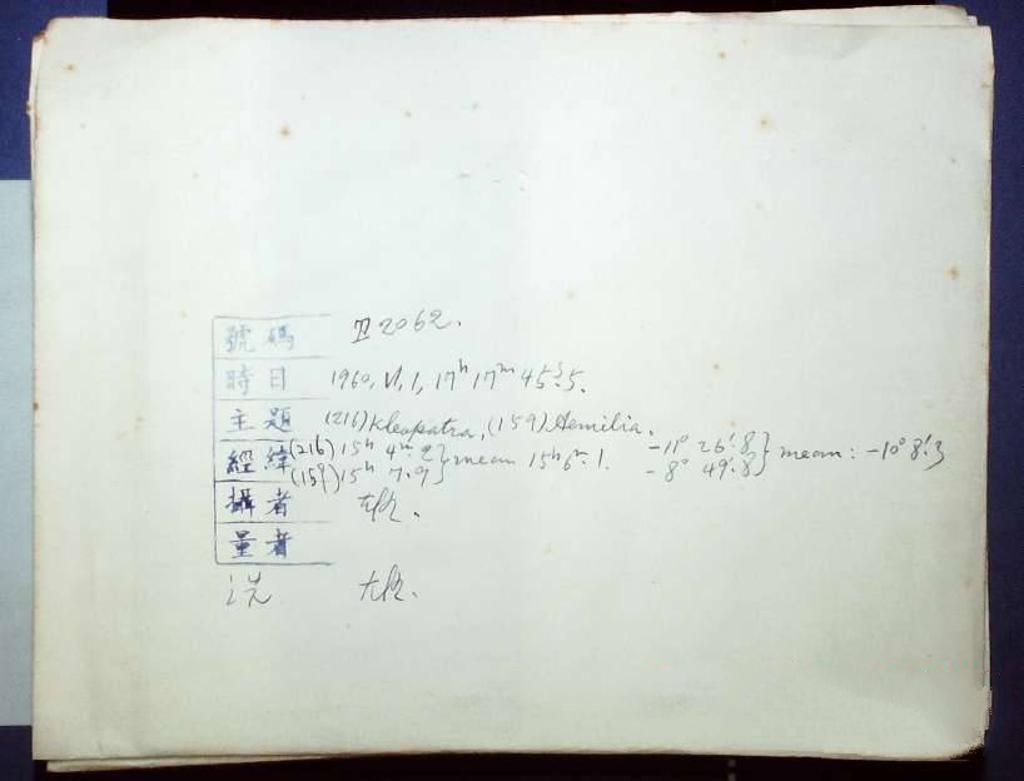 號碼 2062.
時日 1960, VI, 1, 17ʰ 17ᵐ 45ˢ.5.
主題 (216) Kleopatra, (159) Aemilia.
經緯 (216) 15ʰ 4ᵐ.2 } mean 15ʰ 6ᵐ.1. -11° 26'.8 } mean: -10° 8'.3
(159) 15ʰ 7.9 -8° 49'.8
攝者
量者
洗